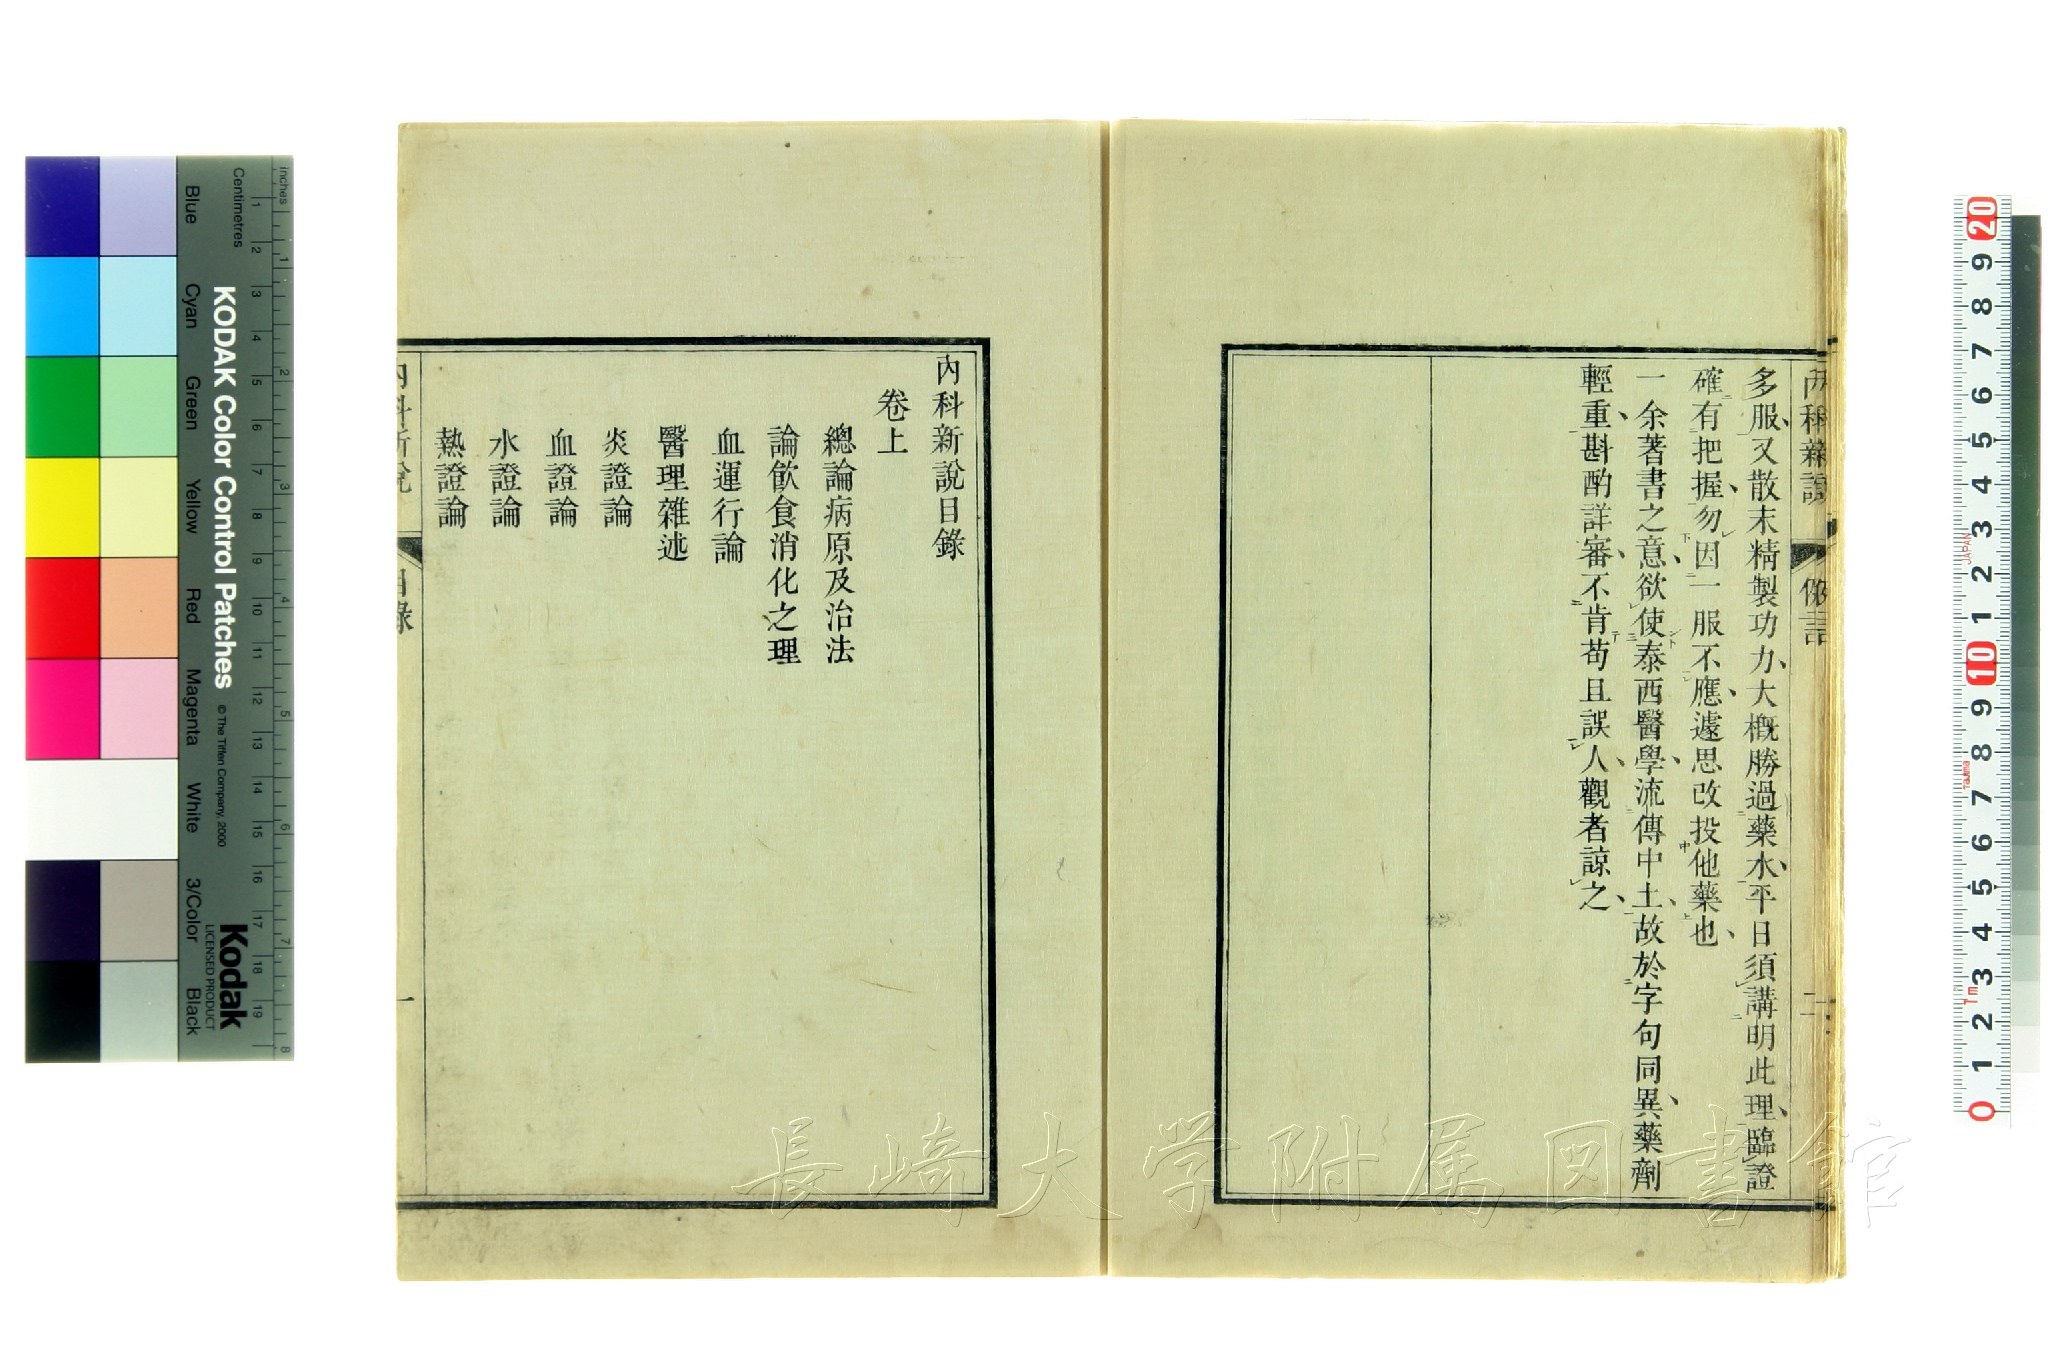 多服又散末精製功力大概勝過藥水平日須講明此理臨證
確有把握勿因一服不應遽思改投他藥也
一余著書之意欲使泰西醫學流傳中土故於字句同異藥劑
輕重斟酌詳審不肯苟且誤人觀者諒之
內科新說目錄
卷上
總論病原及治法
論飲食消化之理
血運行論
醫理雜述
炎證論
血證論
水證論
熱證論
內科新說
目錄
一
長崎大学附属図書館
KODAK Color Control Patches
© The Tiffen Company, 2000
Kodak
LICENSED PRODUCT
Centimetres
inches
Blue
Cyan
Green
Yellow
Red
Magenta
White
3/Color
Black
1 2 3 4 5 6 7 8 9 10 11 12 13 14 15 16 17 18 19
1 2 3 4 5 6 7 8
0 1 2 3 4 5 6 7 8 9 10 1 2 3 4 5 6 7 8 9 20
JAPAN
Tajima
7m